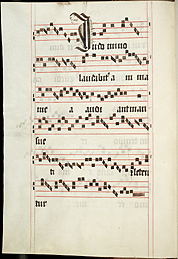 In domino
laudabit a ni ma
me a audi antman
sue
ti
tur